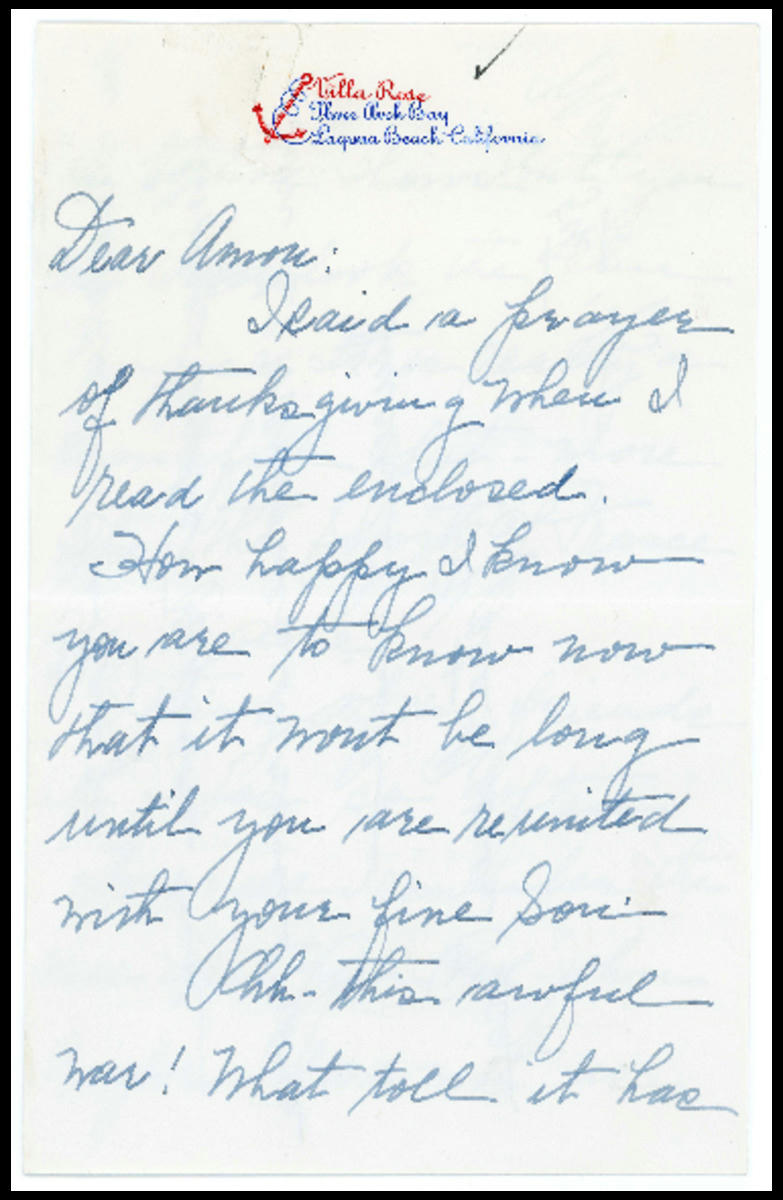 Villa Rose
Three Arch Bay
Laguna Beach California
Dear Amon:
I said a prayer
of thanksgiving when I
read the enclosed.
How happy I know
you are to know now
that it wont be long
until you are reunited
with your fine Son.
Ohh - this awful
war! What toll it has